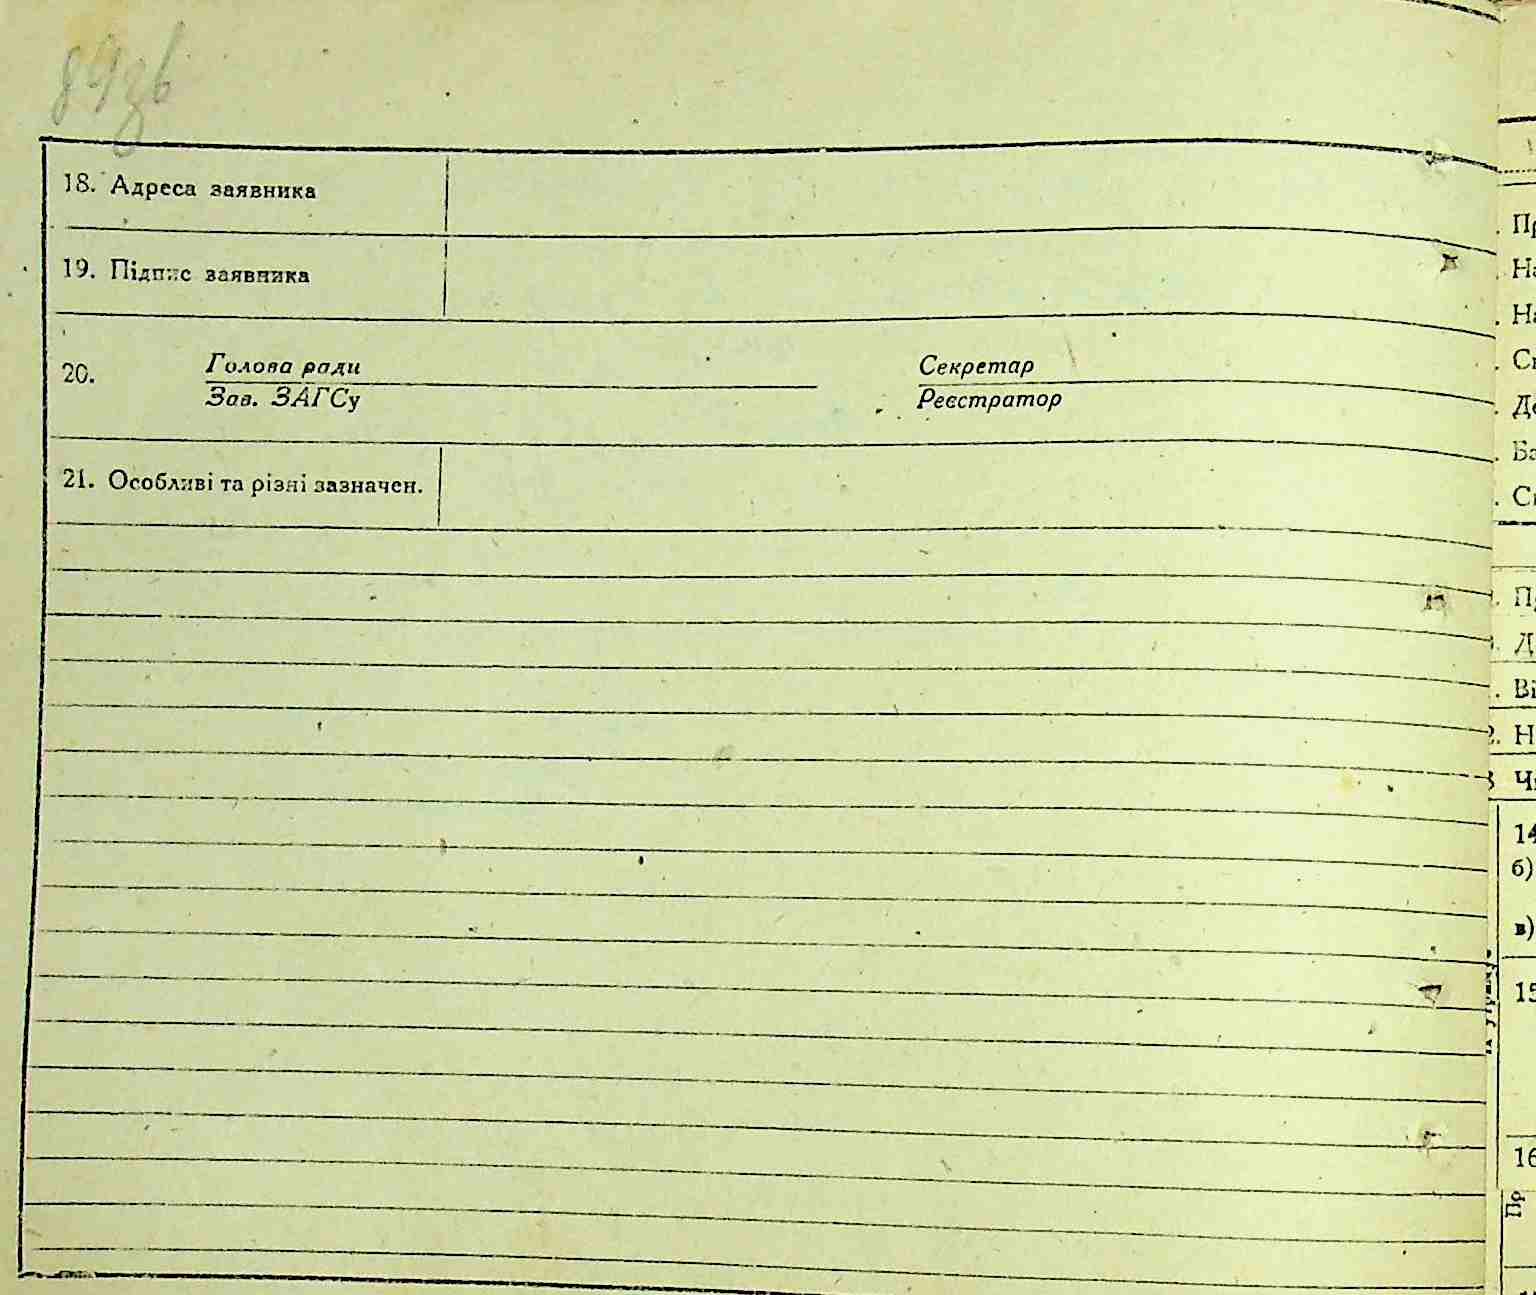 89зв
18. Адреса заявника
19. Підпис заявника
20.
Голова ради
Зав. ЗАГСу
Секретар
Реєстратор
21. Особливі та різні зазначен.
14
б)
в)
15
16